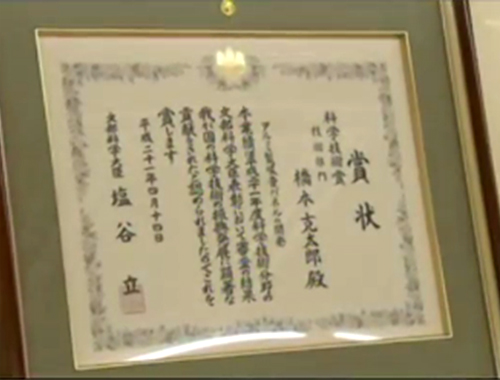 賞状
科学技術賞
技術部門
橋本克太郎殿
アルミ製吸音パネルの開発
本業績は平成二十一年度科学技術分野の
文部科学大臣表彰において審査の結果
我が国の科学技術の振興発展に顕著な
貢献をされたと認められましたのでこれを
賞します
平成二十一年四月十四日
文部科学大臣 塩谷 立